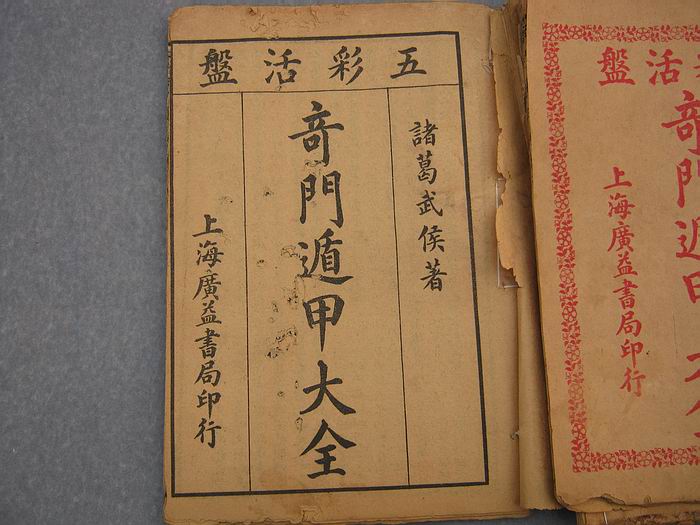 五彩活盤
諸葛武侯著
奇門遁甲大全
上海廣益書局印行
活盤
奇門遁甲
上海廣益書局印行